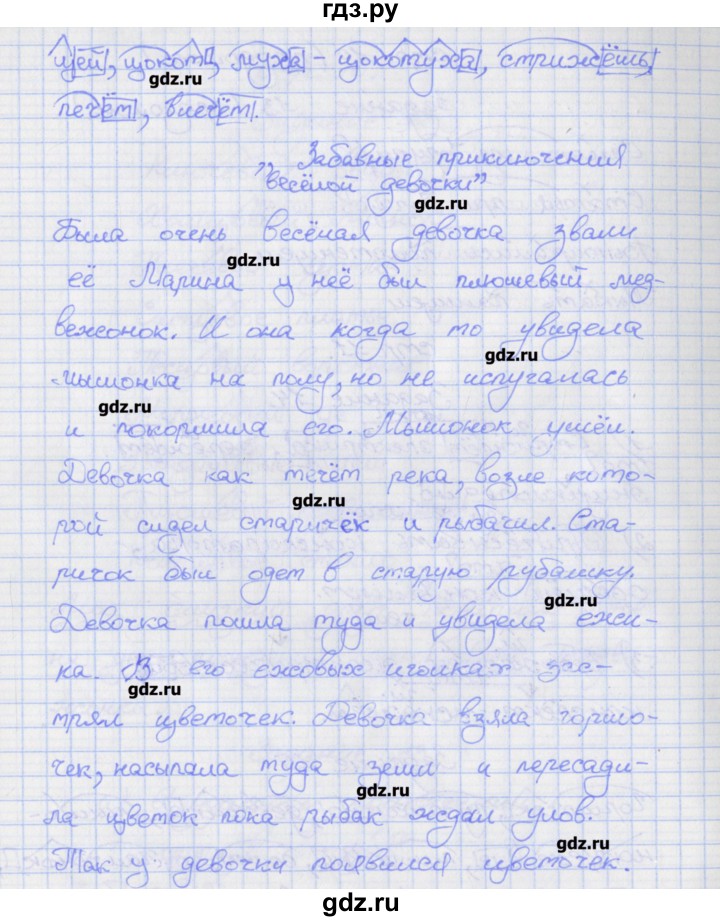 гдз.ру
щей, щокот, муха - щокотуха, стрижёшь,
gdz.ru
печём, влечём.
Забавные приключения
„весёлой девочки”
gdz.ru
Была очень весёлая девочка звали
gdz.ru
её Марина у неё был плюшевый мед-
вежонок. И она когда то увидела
gdz.ru
мышонка на полу, но не испугалась
gdz.ru
и покормила его. Мышонок ушёл.
Девочка как течёт река, возле кото-
gdz.ru
рой сидел старичёк и рыбачил. Ста-
ричок был одет в старую рубашку.
gdz.ru
Девочка пошла туда и увидела ежи-
ка. В его ежовых иголках зас-
gdz.ru
трял цветочек. Девочка взяла горшо-
чек, насыпала туда земли и пересади-
gdz.ru
ла цветок пока рыбак ждал улов.
gdz.ru
Так у девочки появился цветочек.
gdz.ru